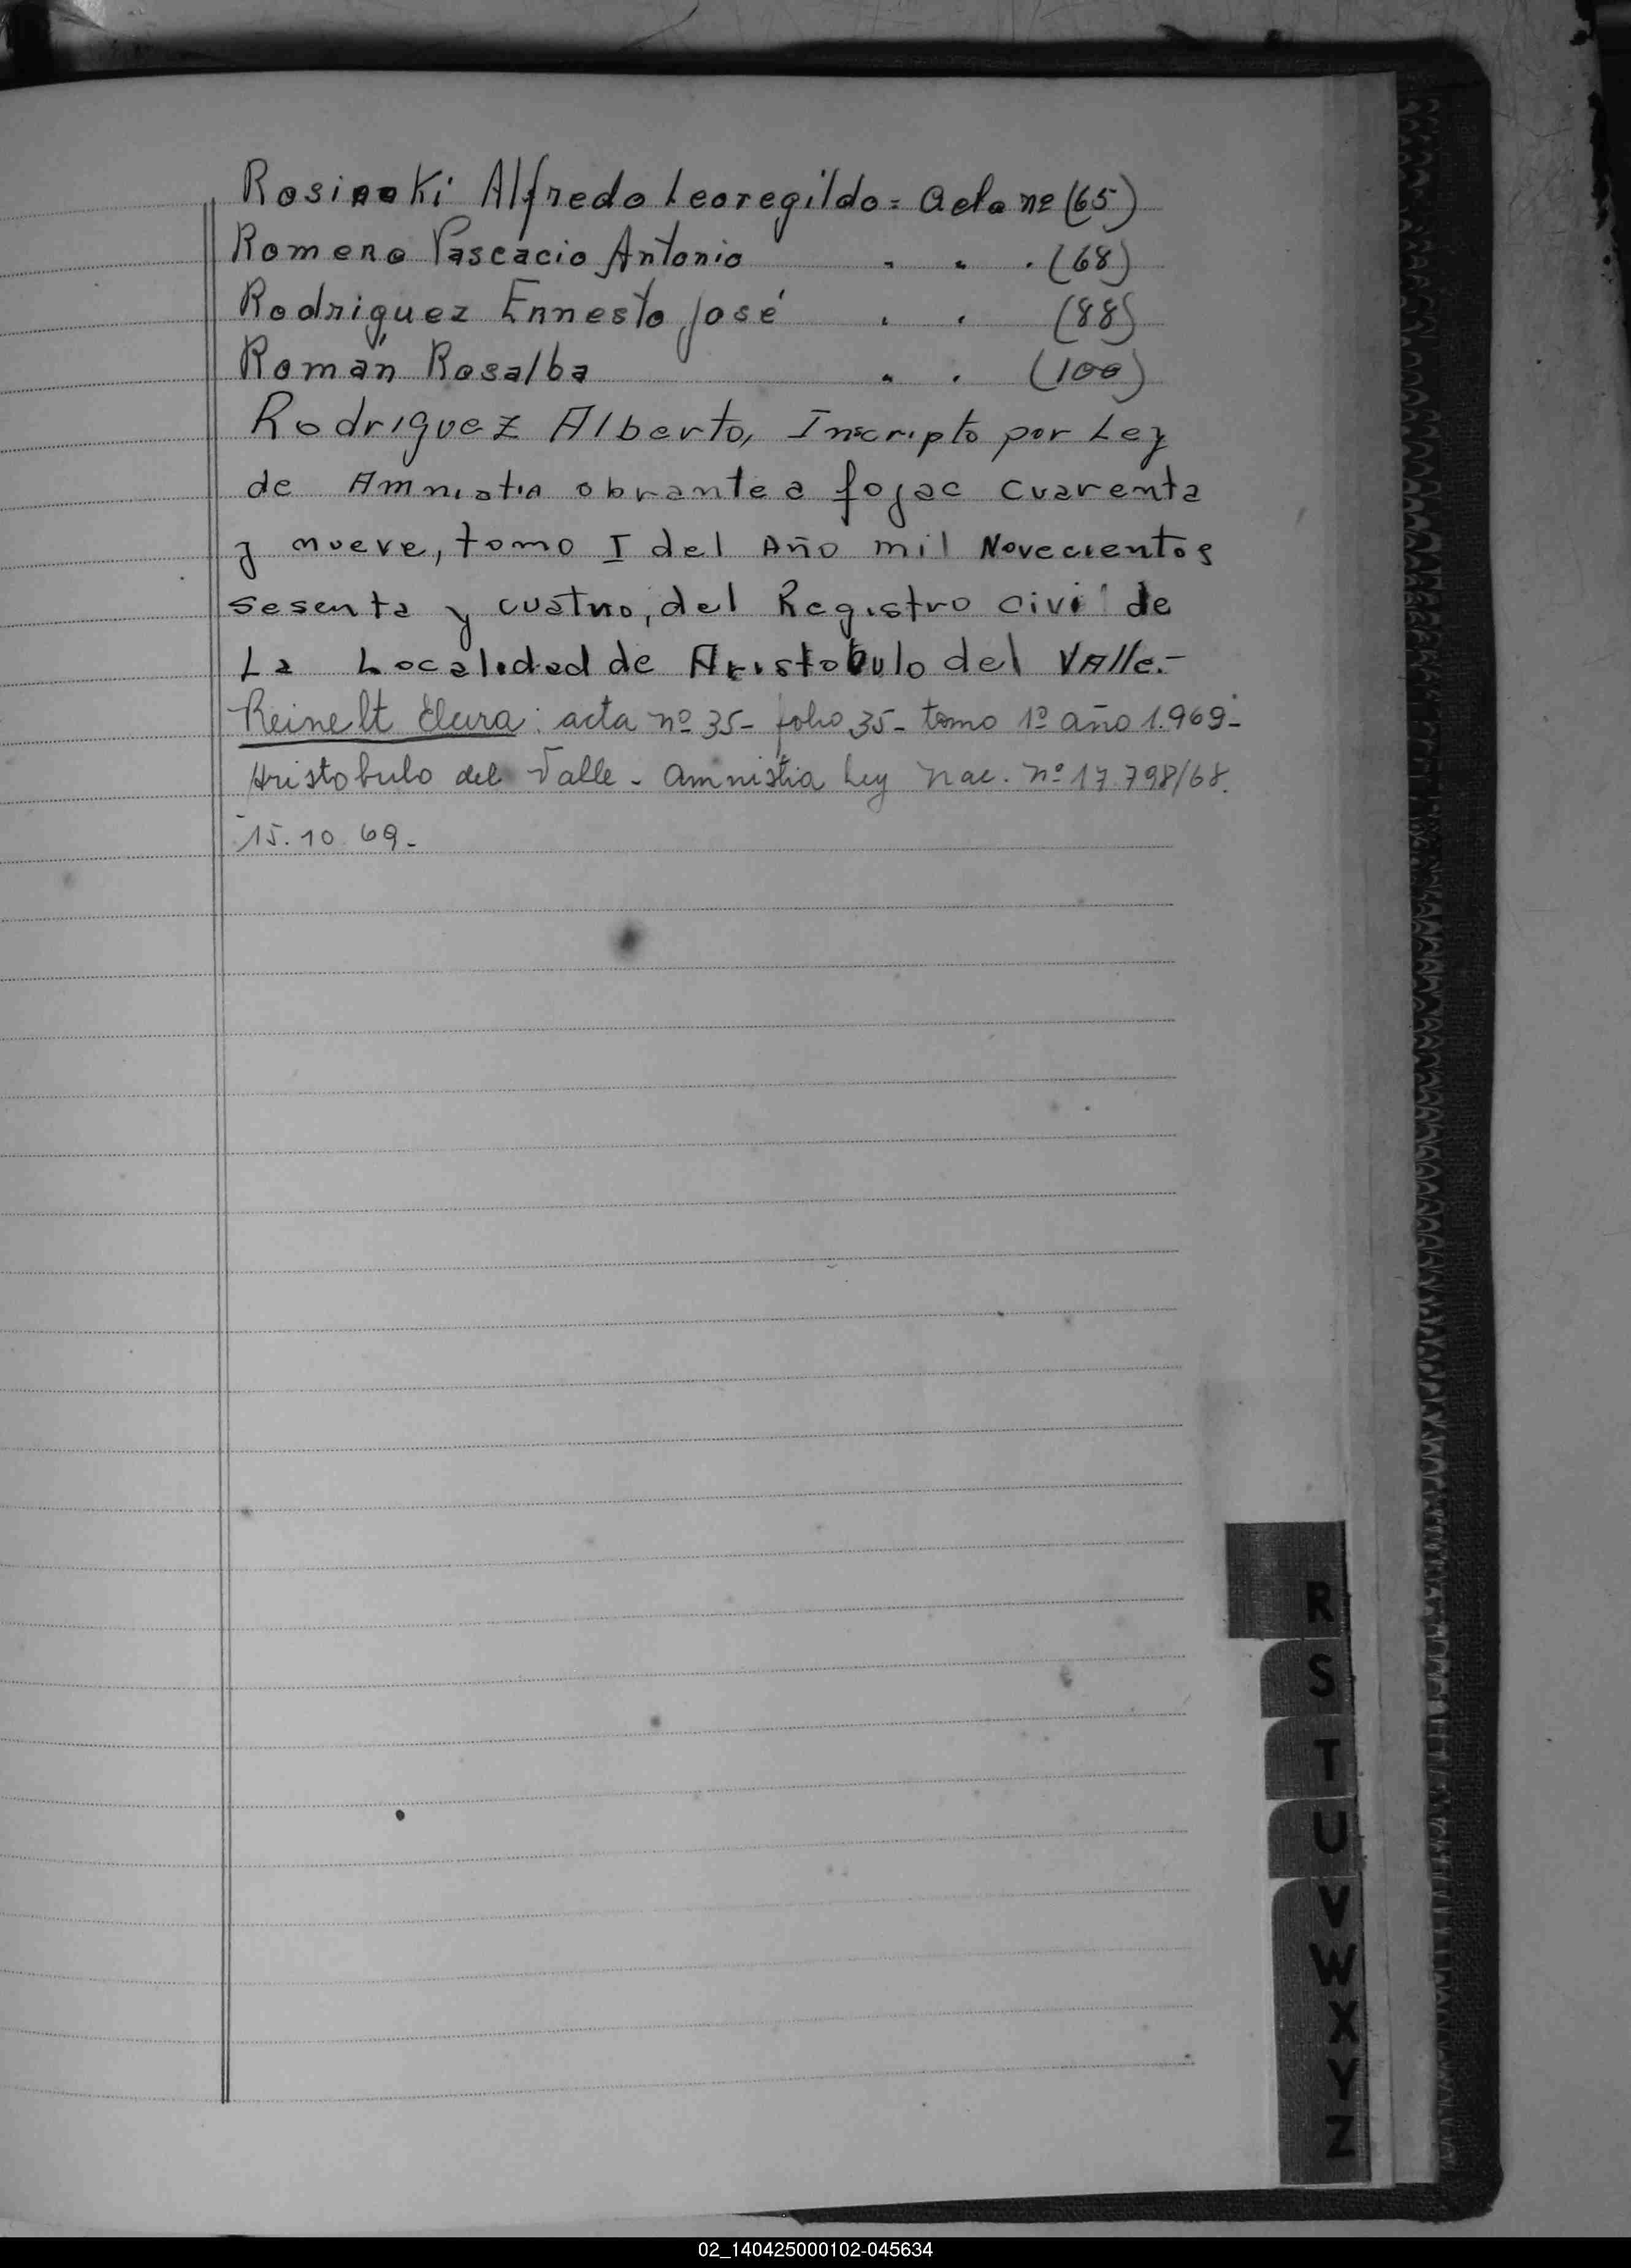 Rosinoki Alfredo Leoregildo = Acta nº (65)
Romero Pascacio Antonio " " " (68)
Rodriguez Ernesto José " " (88)
Román Rosalba " " (100)
Rodriguez Alberto, Inscripto por Ley
de Amnistia obrante a fojas cuarenta
y nueve, tomo I del Año mil Novecientos
sesenta y cuatro, del Registro civil de
La Localidad de Aristobulo del Valle.-
Reinelt Clara: acta nº 35- folio 35- tomo 1º año 1.969-
Aristobulo del Valle - Amnistia Ley Nac. nº 17.798/68.
15.10.69-
R
S
T
U
V
W
X
Y
Z
02_140425000102-045634